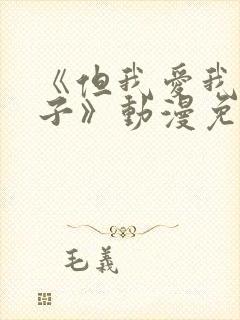 《但我爱我
子》動漫免
毛義